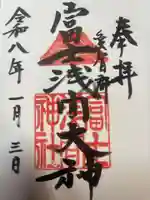 奉拝
富士浅間大神
令和八年一月三日